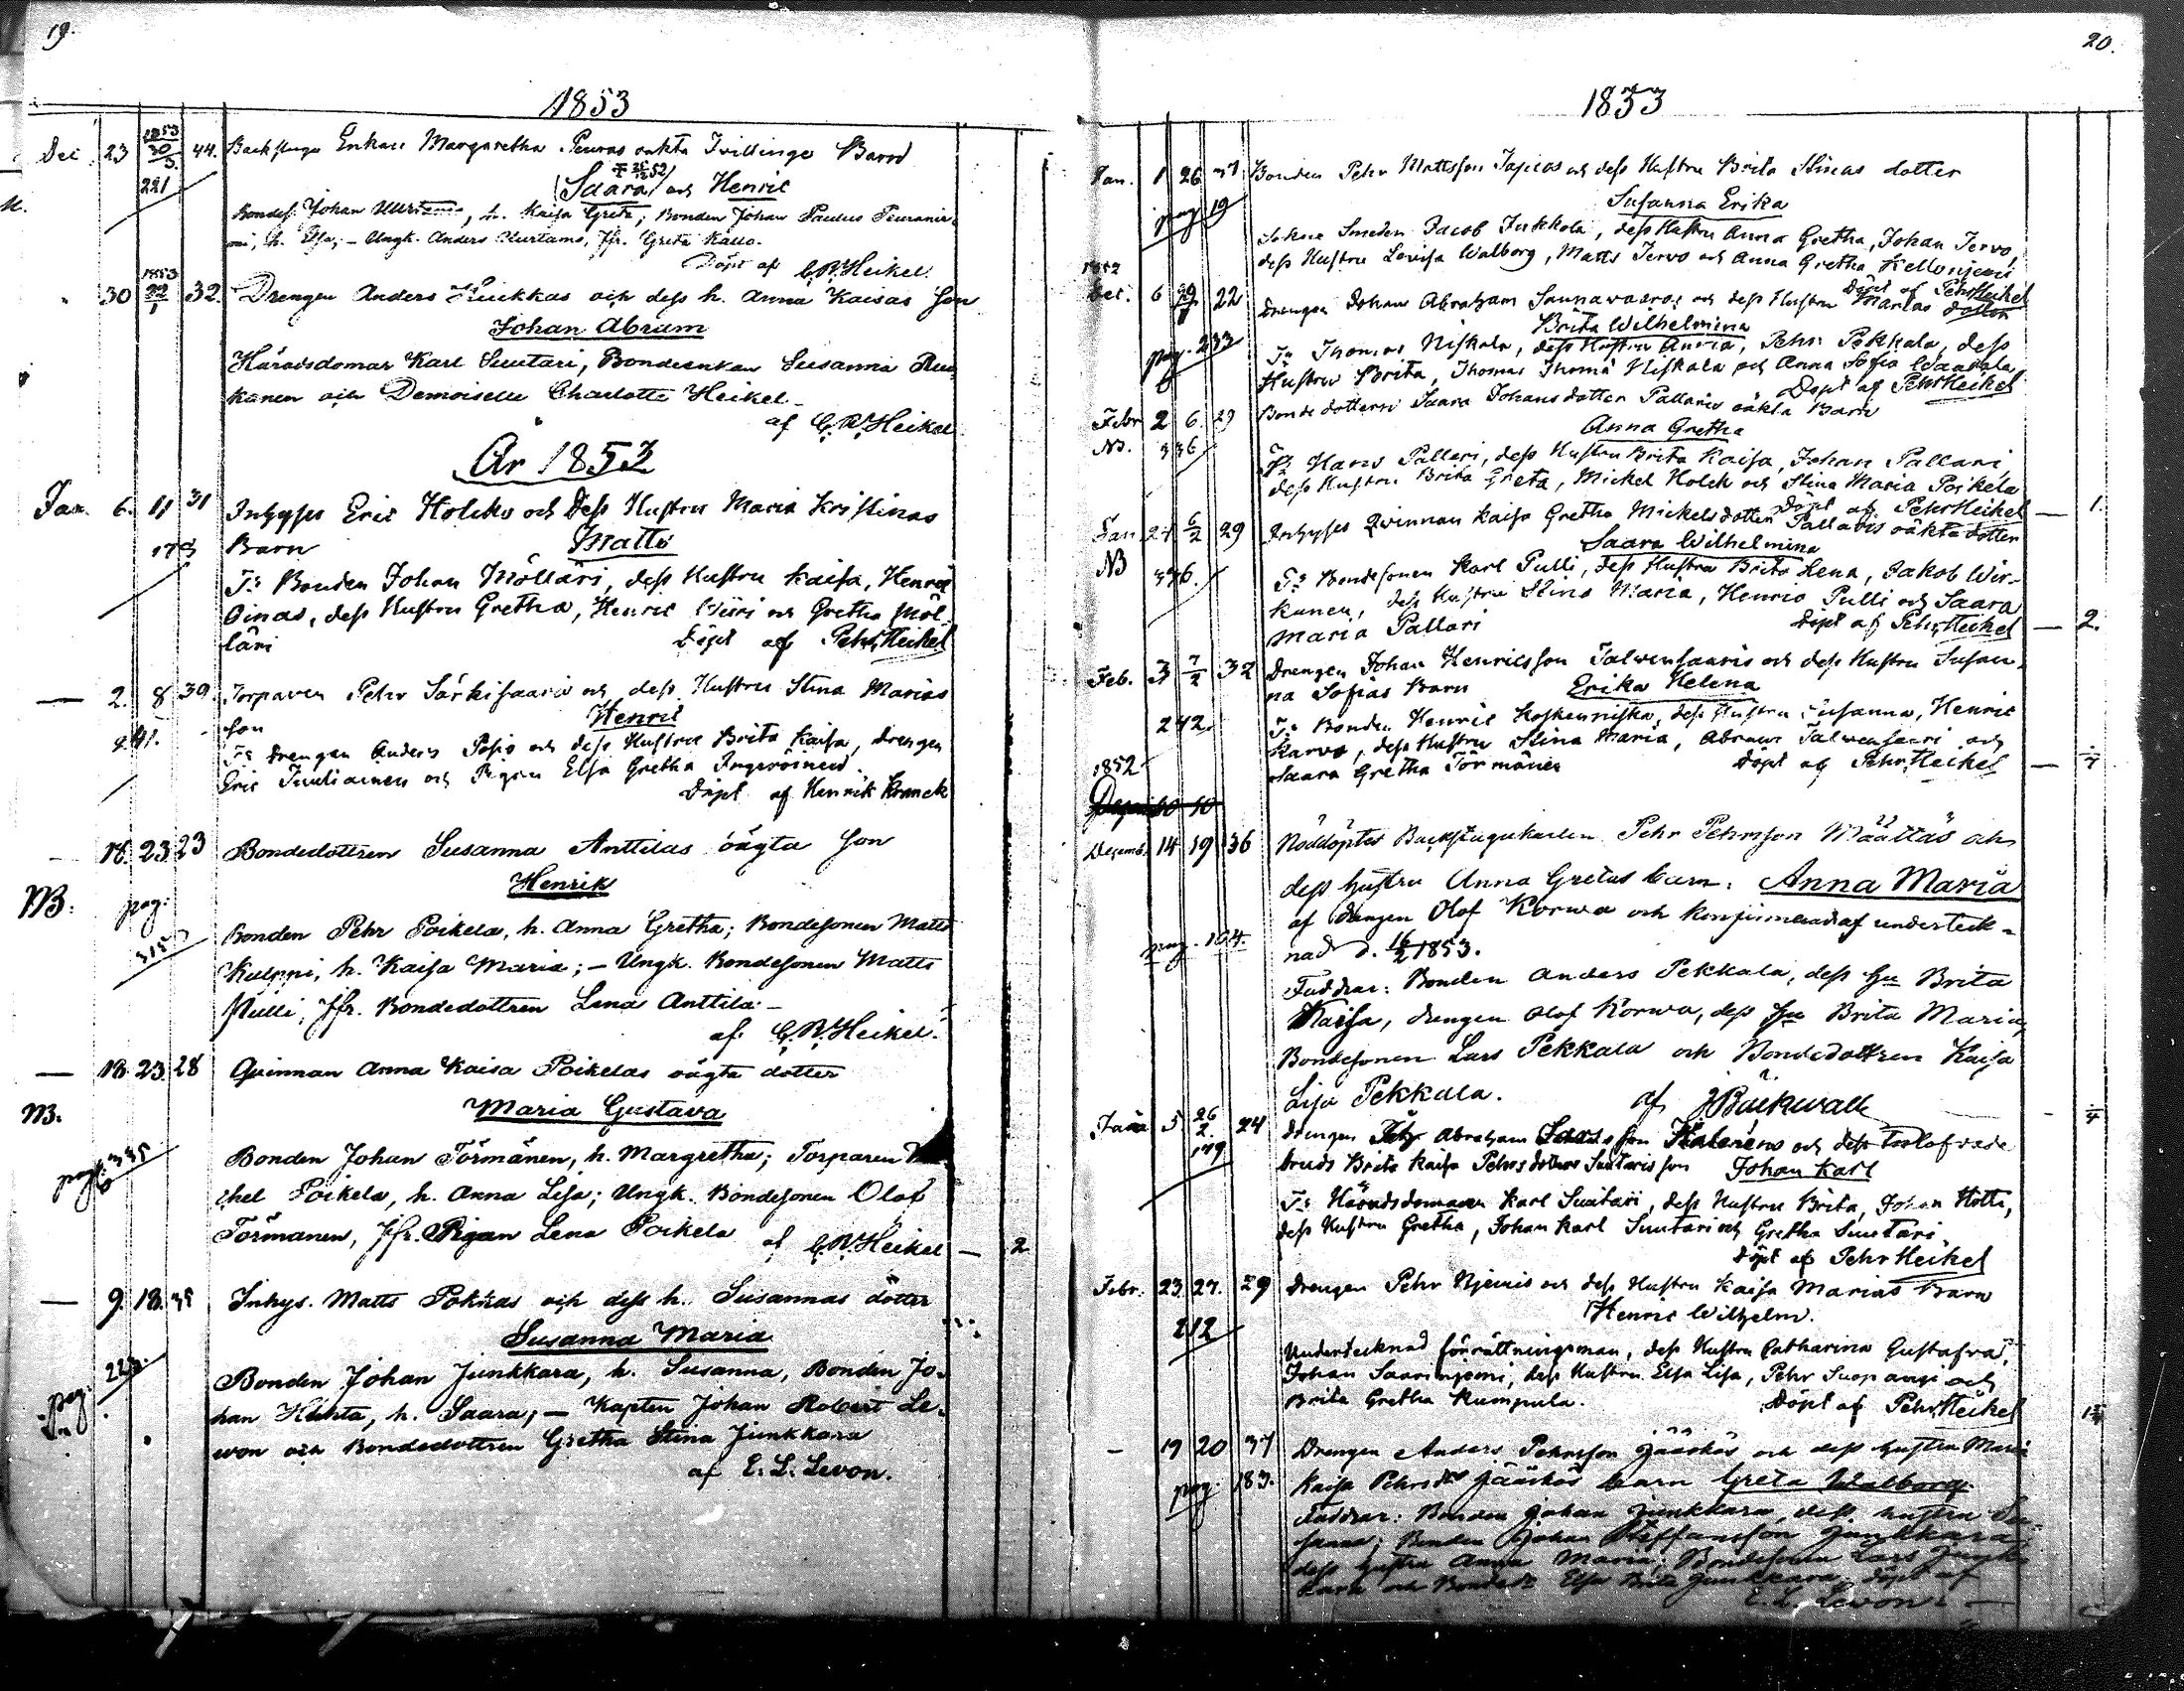 19.
1853
Dec. 23 1853 30/3 44. Backstugu Enkan Margaretha Peuras oäkta Tvillinge Barn
221 (Saara) och Henric
Bondes. Johan Kurtamo, h. Kaisa Greta; Bonden Johan Paulus Peuranie-
mi, h. Elsa; – Ungk. Anders Kurtamo, Jfr. Greta Kallo.
Döpt af C.W. Heikel.
30 1853 22/1 32. Drengen Anders Kuukkas och dess h. Anna Kaisas son
Johan Abram
Häradsdomar Karl Suutari, Bondeenkan Susanna
kanen och Demoiselle Charlotte Heikel –
af C.W. Heikel
År 1853
Jan. 6. 11 31 Inhyses Eric Holcko och Dess Hustru Maria Kristinas
Barn Matts
F: Bonden Johan Mölläri, dess Hustru Kaisa, Henric
Oinas, dess Hustru Gretha, Henric Wiiri och Gretha Möl-
läri Döpt af Pehr Heikel
— 2. 8 39. Torparen Pehr Särkisaari och dess Hustru Stina Marias
son Henric
241. F: Drengen Anders Posio och dess Hustru Brita Kaisa, Drengen
Eric Tuuliainen och Pigan Elsa Gretha
Döpt af Henrik Kranck
— 18. 23. 23 Bondedottren Susanna Anttilas oägta son
Henrik
NB. pag: 315
Bonden Pehr Poikela, h. Anna Gretha; Bondesonen Matts
Kulppi, h. Kaisa Maria; – Ungk. Bondesonen Matts
Pulli, Jfr. Bondedottren Lena Anttila. –
af C.W. Heikel.
— 18. 23. 28 Qvinnan Anna Kaisa Poikelas oägta dotter
NB. Maria Gustava
pag: 335
Bonden Johan Törmänen, h. Margretha; Torparen
chel Poikela, h. Anna Lisa; Ungk. Bondesonen Olof
Törmänen, Jfr. Pigan Lena Poikela af C.W. Heikel — 2
— 9. 18. 39 Inhys. Matts Pokkas och dess h. Susannas dotter
Susanna Maria
pag: 223.
Bonden Johan Junkkara, h. Susanna, Bonden Jo-
han Huhta, h. Saara; – Kapten Johan Robert Le-
von och Bondedottren Gretha Stina Junkkara
af E. L. Levon.
20.
1853
Jan. 1 26 37 Bonden Pehr Mattsson Tapios och dess Hustru Brita Stinas dotter
pag 19 Susanna Erika
Sokne Smeden Jacob Jukkola, dess Hustru Anna Gretha, Johan Jervo,
dess Hustru Lovisa Walborg, Matts Jervo och Anna Gretha Kellonjemi
Döpt af Pehr Heikel
1852
Dec. 6 22 Drengen Johan Abraham Saunavaaras och dess Hustru Marias dotter
Brita Wilhelmina
pag. 233 F: Thomas Niskala, dess Hustru Anna, Pehr Pekkala, dess
Hustru Brita, Thomas Thomä Niskala och Anna Sofia Waarala
Döpt af Pehr Heikel
Febr 2 6. 29 Bonde dottern Saara Johansdotter Pallaris oäkta Barn
NB. 336 Anna Gretha
F: Hans Pallari, dess Hustru Brita Kaisa, Johan Pallari,
dess Hustru Brita Greta, Mickel Holck och Stina Maria Poikela
Döpt af Pehr Heikel — 1.
Jan 27 6/2 29 Inhyses Qvinnan Kaisa Gretha Mickelsdotter Pallaris oäkta dotter
NB Saara Wilhelmina
336. F: Bondesonen Karl Pulli, dess Hustru Brita Lena, Jakob Wir-
kunen, dess Hustru Stina Maria, Henric Pulli och Saara
Maria Pallari Döpt af Pehr Heikel — 2.
Feb. 3 7/2 32 Drengen Johan Henricsson Talvensaaris och dess Hustru Susan-
na Sofias Barn Erika Helena
242. F: Bonden Henric Koskenniska, dess Hustru Susanna, Henric
Karvo, dess Hustru Stina Maria, Abram Talvensaari och
Saara Gretha Törmänen Döpt af Pehr Heikel —
1852
Decemb. 14 19 36 Nöddöptes Backstugukarlen Pehr Pehrsson Määttäs och
dess hustru Anna Gretas barn: Anna Maria
af drengen Olof Korwa och konfirmerad af underteck-
pag. 104. nad d. 16/2 1853.
Faddrar: Bonden Anders Pekkala, dess Hu Brita
Kaisa, drengen Olof Korwa, dess Hu Brita Maria,
Bondesonen Lars Pekkala och Bondedottren Kaisa
Lisa Pekkala. af J Bäckwall
Jan 5 26/2. 24 Drengen Abraham och dess trolofvade
179 bruds Brita Kaisa Pehrsdotter Suutaris son Johan Karl
F: Häradsdomaren Karl Suutari, dess Hustru Brita, Johan Hotti,
dess Hustru Gretha, Johan Karl Suutari och Gretha Suutari.
Döpt af Pehr Heikel
Febr. 23. 27. 29 Drengen Pehr Njemis och dess Hustru Kaisa Marias Barn
212 Henric Wilhelm.
Undertecknad förrättningsman, dess Hustru Catharina Gustafva,
Johan Saarinjemi, dess Hustru Elsa Lisa, Pehr Suopanji och
Brita Gretha Kumpula. Döpt af Pehr Heikel
— 19 20 37 Drengen Anders Pehrsson Jääskös och dess hustru Maria
pag: 183. Kaisa Pehrsdr Jääskös barn Greta Walborg
Faddrar: Bonden Johan Junkkara, dess hustru Su-
sanna; Bonden Johan Steffansson Junkkara,
dess hustru Anna Maria; Bondesonen Lars Junk-
kara och Bondedr Elsa Brita Junkkara. Döpt af
E. L. Levon. —